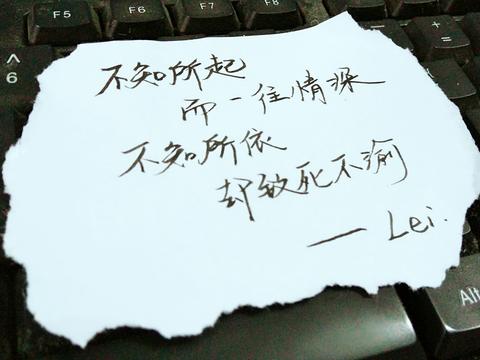 F5 F6 F7 F8
^
6
+
=
不知所起
而一往情深
不知所依
却致死不渝
— Lei.
Alt